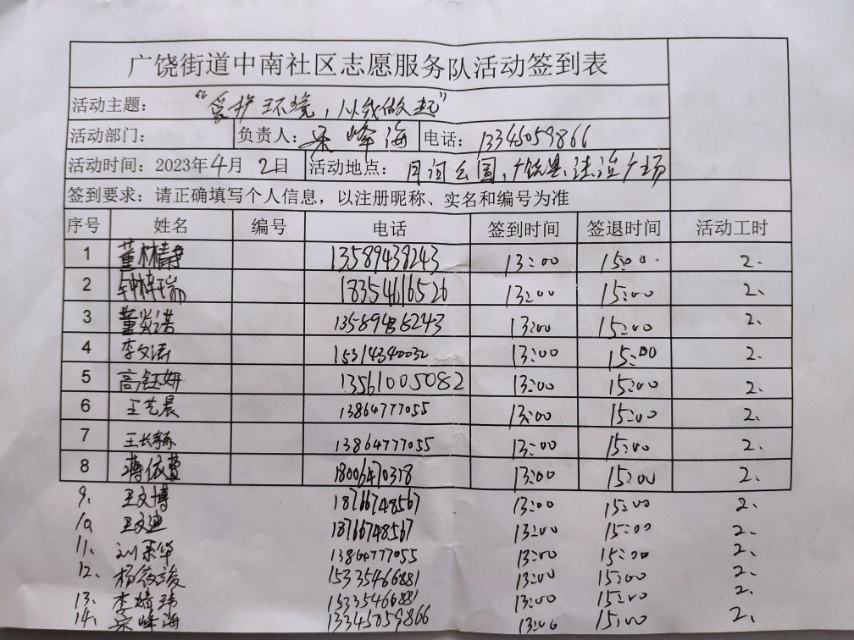 广饶街道中南社区志愿服务队活动签到表
活动主题： “爱护环境，从我做起”
活动部门： 负责人：宋峰海 电话：13345059866
活动时间：2023年4月2日 活动地点：月河公园，广饶县法治广场
签到要求：请正确填写个人信息，以注册昵称、实名和编号为准
序号 姓名 编号 电话 签到时间 签退时间 活动工时
1 董林静 13589439243 13:00 15:00 2.
2 钟梓瑞 18354616526 13:00 15:00 2.
3 董炎诺 13:00 15:00 2.
4 李文涛 15314340032 13:00 15:00 2.
5 高钰妍 13561005082 13:00 15:00 2.
6 王艺晨 13864777055 13:00 15:00 2.
7 13864777055 13:00 15:00 2.
8 蒋依萱 18006470318 13:00 15:00 2.
9、 王文博 18766748567 13:00 15:00 2.
10、 王文迪 18766748567 13:00 15:00 2.
11、 刘荣华 13864777055 13:00 15:00 2.
12、 15335466881 13:00 15:00 2.
13、 15335466881 13:00 15:00 2.
14、 宋峰海 13345059866 13:00 15:00 2.